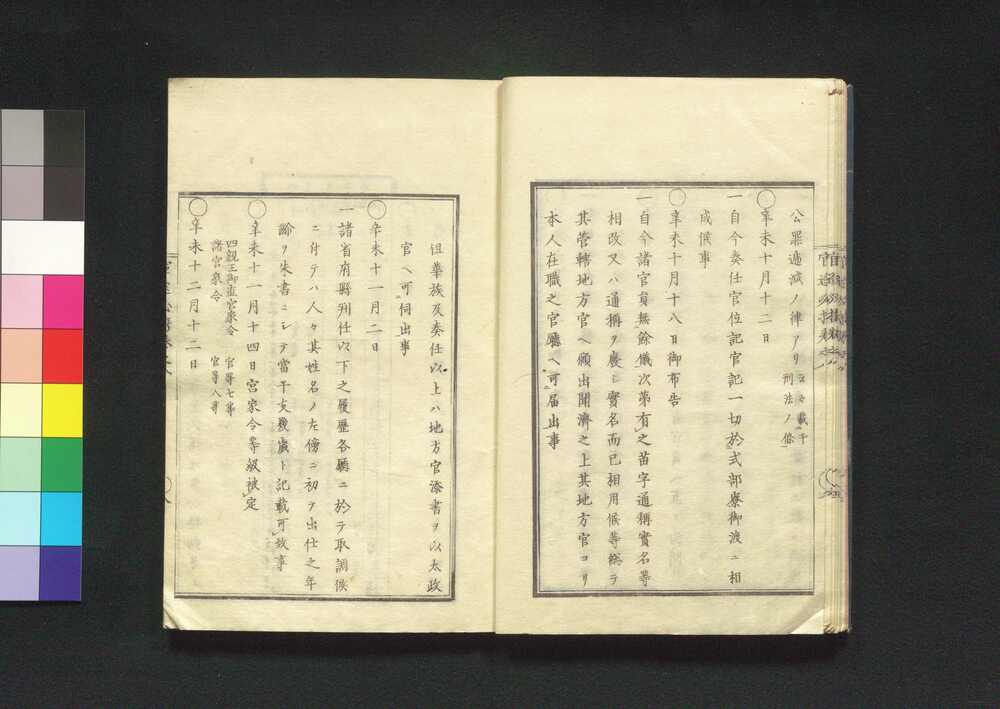 公罪逓減ノ律アリ コヽニ載于刑法ノ條
○辛未十月十二日
一自今奏任官位記官記一切於式部寮御渡ニ相
成候事
○辛未十月十八日御布告
一自今諸官員無餘儀次第有之苗字通稱實名等
相改又ハ通稱ヲ廢シ實名而已相用候等総テ
其管轄地方官ヘ願出聞濟之上其地方官ヨリ
本人在職之官廳ヘ可届出事
但華族及奏任以上ハ地方官添書ヲ以太政
官ヘ可伺出事
○辛未十一月二日
一諸省府縣判任以下之履歴各廳ニ於テ取調候
ニ付テハ人々其姓名ノ左傍ニ初テ出仕之年
齢ヲ朱書ニシテ當干支幾歳ト記載可致事
○辛未十一月十四日宮家令等級被定
四親王御直宮家令 官等七等
諸宮家令 官等八等
○辛未十二月十二日